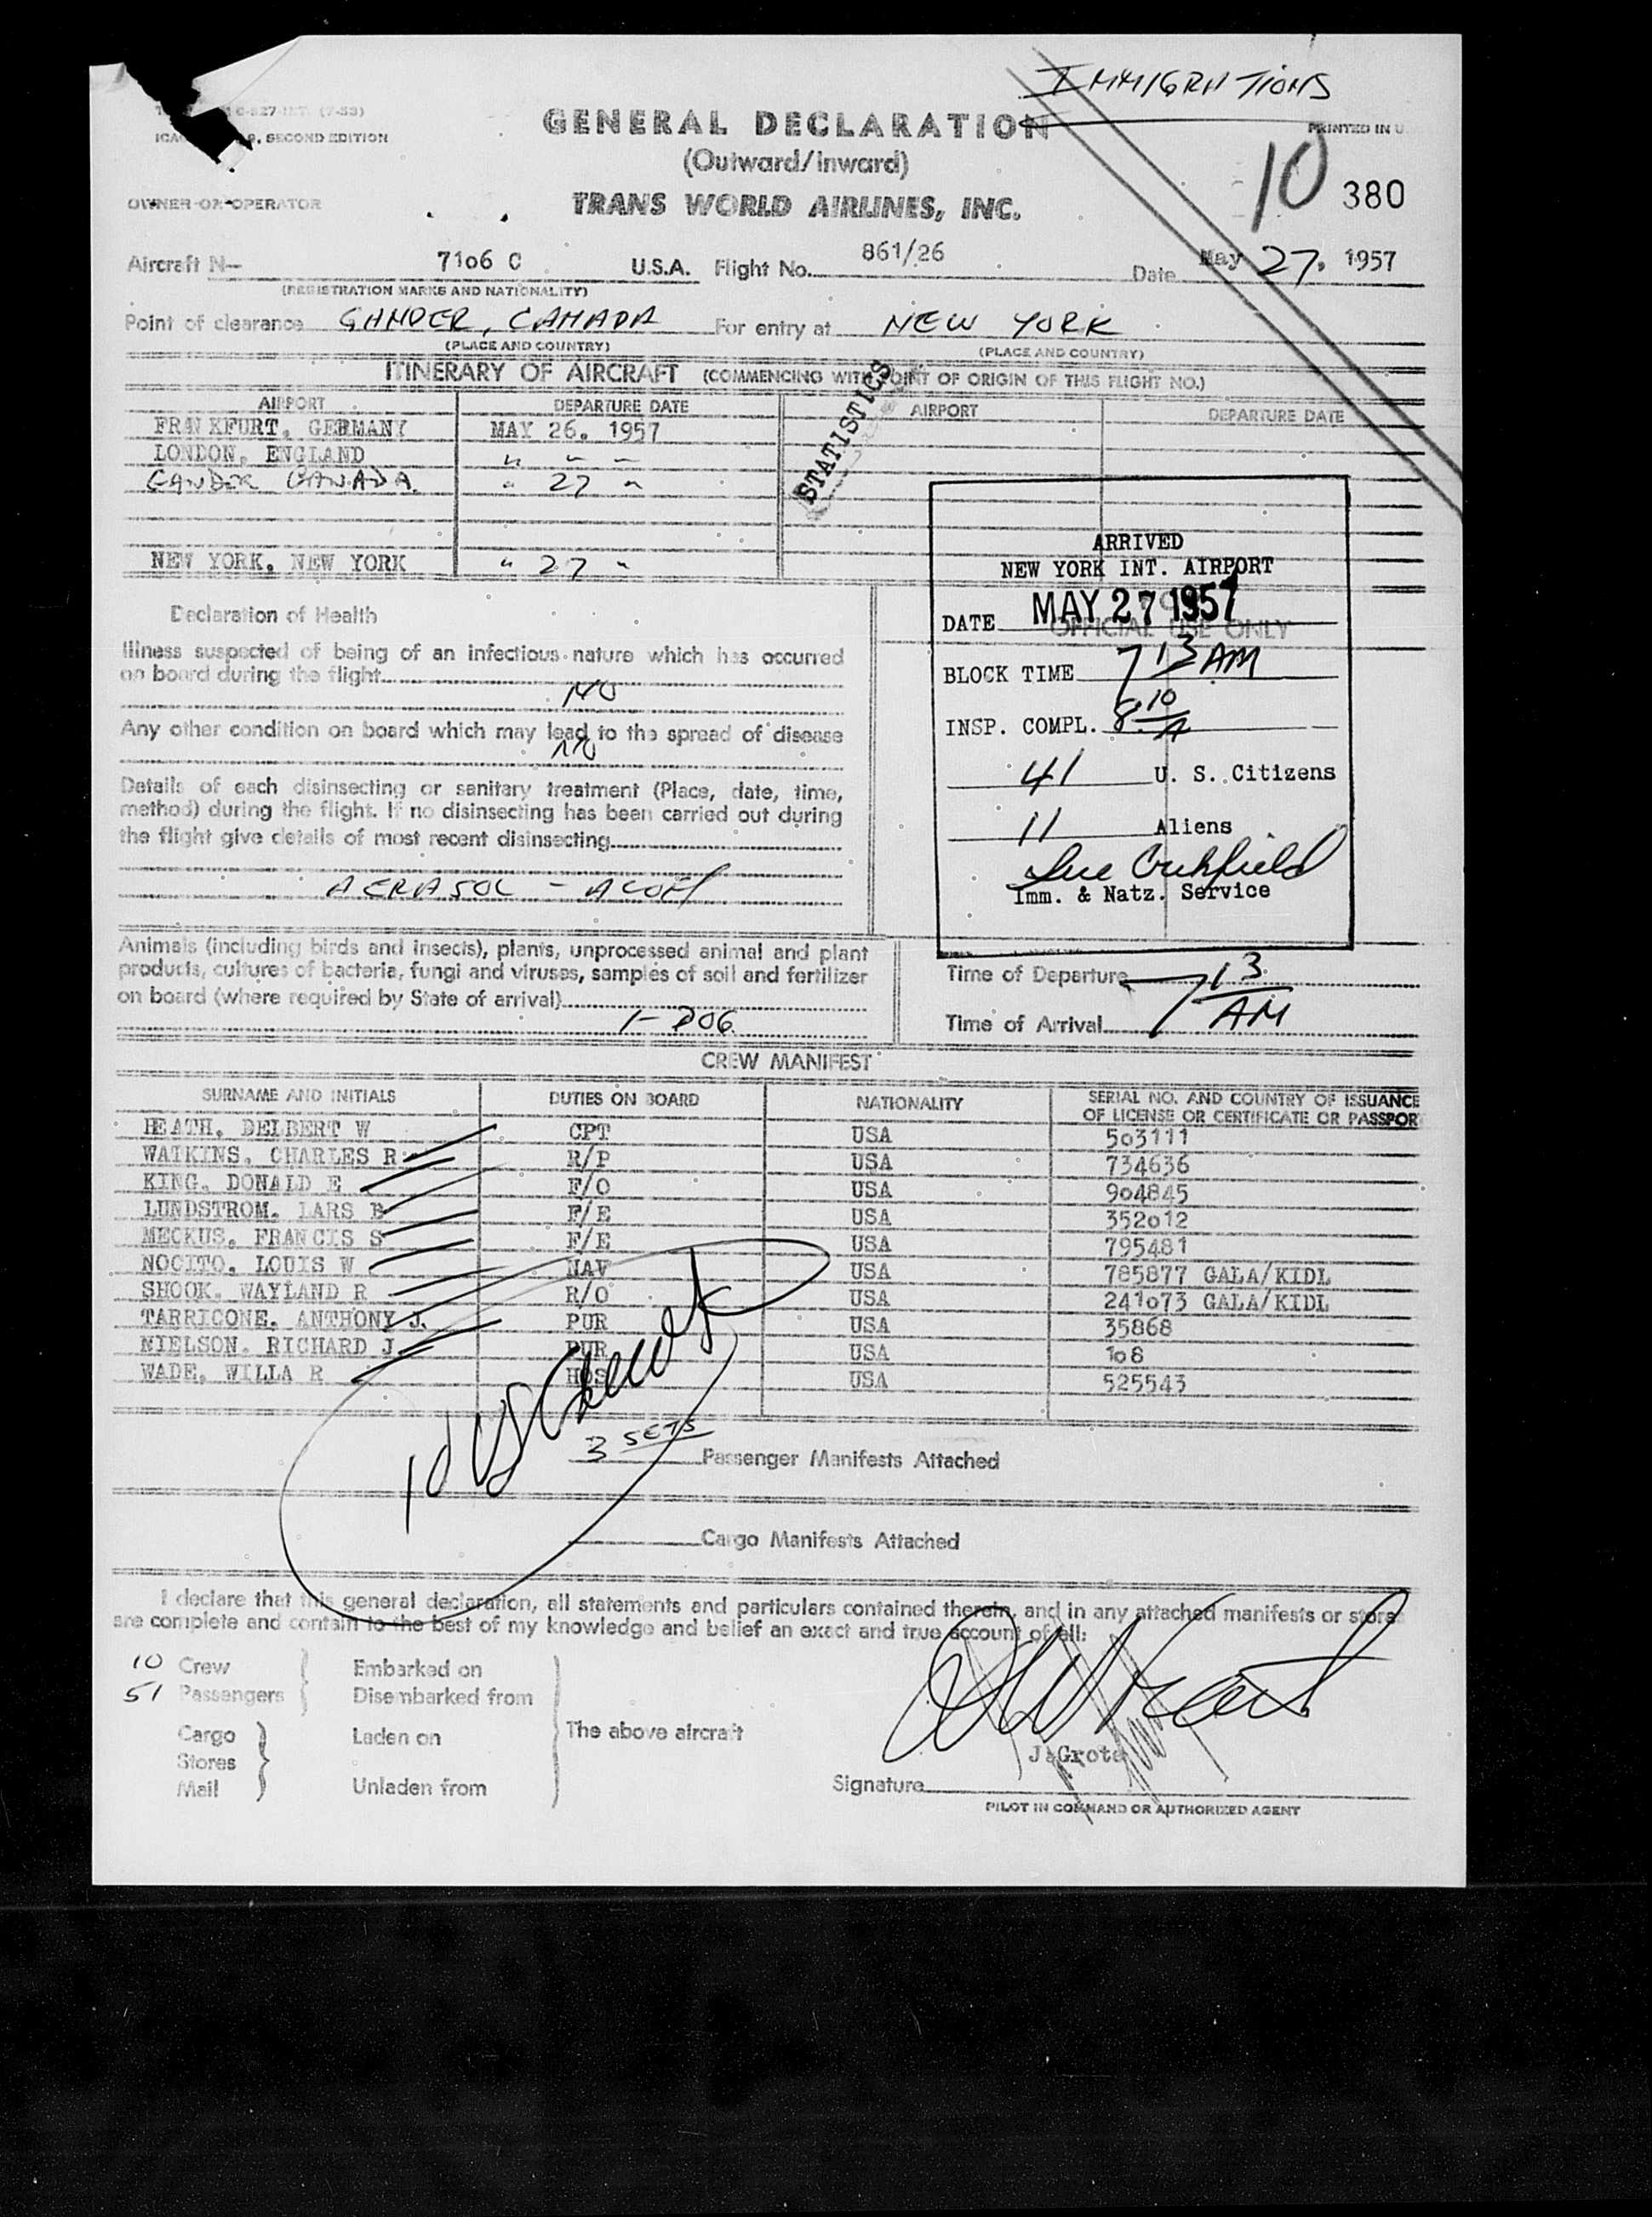 IMMIGRATIONS
(7-53)
SECOND EDITION
GENERAL DECLARATION
PRINTED IN U
(Outward/inward)
10
380
OWNER OR OPERATOR
TRANS WORLD AIRLINES, INC.
Aircraft N— 7106 C U.S.A. Flight No. 861/26 Date May 27, 1957
(REGISTRATION MARKS AND NATIONALITY)
Point of clearance GANDER, CANADA For entry at NEW YORK
(PLACE AND COUNTRY) (PLACE AND COUNTRY)
ITINERARY OF AIRCRAFT (COMMENCING WITH POINT OF ORIGIN OF THIS FLIGHT NO.)
AIRPORT DEPARTURE DATE AIRPORT DEPARTURE DATE
FRANKFURT, GERMANY MAY 26. 1957
LONDON, ENGLAND " " "
GANDER CANADA. " 27 "
STATISTICS
NEW YORK. NEW YORK " 27 "
ARRIVED
NEW YORK INT. AIRPORT
DATE MAY 27 1957
OFFICIAL USE ONLY
BLOCK TIME 7 13 AM
INSP. COMPL. 8:10 A
41 U. S. Citizens
11 Aliens
Imm. & Natz. Service
Declaration of Health
Illness suspected of being of an infectious nature which has occurred
on board during the flight
NO
Any other condition on board which may lead to the spread of disease
NO
Details of each disinsecting or sanitary treatment (Place, date, time,
method) during the flight. If no disinsecting has been carried out during
the flight give details of most recent disinsecting
AERASOL -
Animals (including birds and insects), plants, unprocessed animal and plant
products, cultures of bacteria, fungi and viruses, samples of soil and fertilizer
on board (where required by State of arrival)
1- DOG
Time of Departure
7 13 AM
Time of Arrival
CREW MANIFEST
SURNAME AND INITIALS DUTIES ON BOARD NATIONALITY SERIAL NO. AND COUNTRY OF ISSUANCE
OF LICENSE OR CERTIFICATE OR PASSPOR
HEATH, DELBERT W CPT USA 503111
WATKINS, CHARLES R R/P USA 734636
KING, DONALD E F/O USA 904845
LUNDSTROM. LARS B F/E USA 352012
MECKUS, FRANCIS S F/E USA 795481
NOCITO, LOUIS W NAV USA 785877 GALA/KIDL
SHOOK, WAYLAND R R/O USA 241073 GALA/KIDL
TARRICONE, ANTHONY J. PUR USA 35868
NIELSON, RICHARD J PUR USA 108
WADE, WILLA R HOS USA 525543
10 US Crew
3 SETS Passenger Manifests Attached
Cargo Manifests Attached
I declare that this general declaration, all statements and particulars contained therein, and in any attached manifests or stores
are complete and contain to the best of my knowledge and belief an exact and true account of all:
10 Crew Embarked on
51 Passengers Disembarked from
Cargo Laden on The above aircraft
Stores
Mail Unladen from
J. Grote
Signature
PILOT IN COMMAND OR AUTHORIZED AGENT